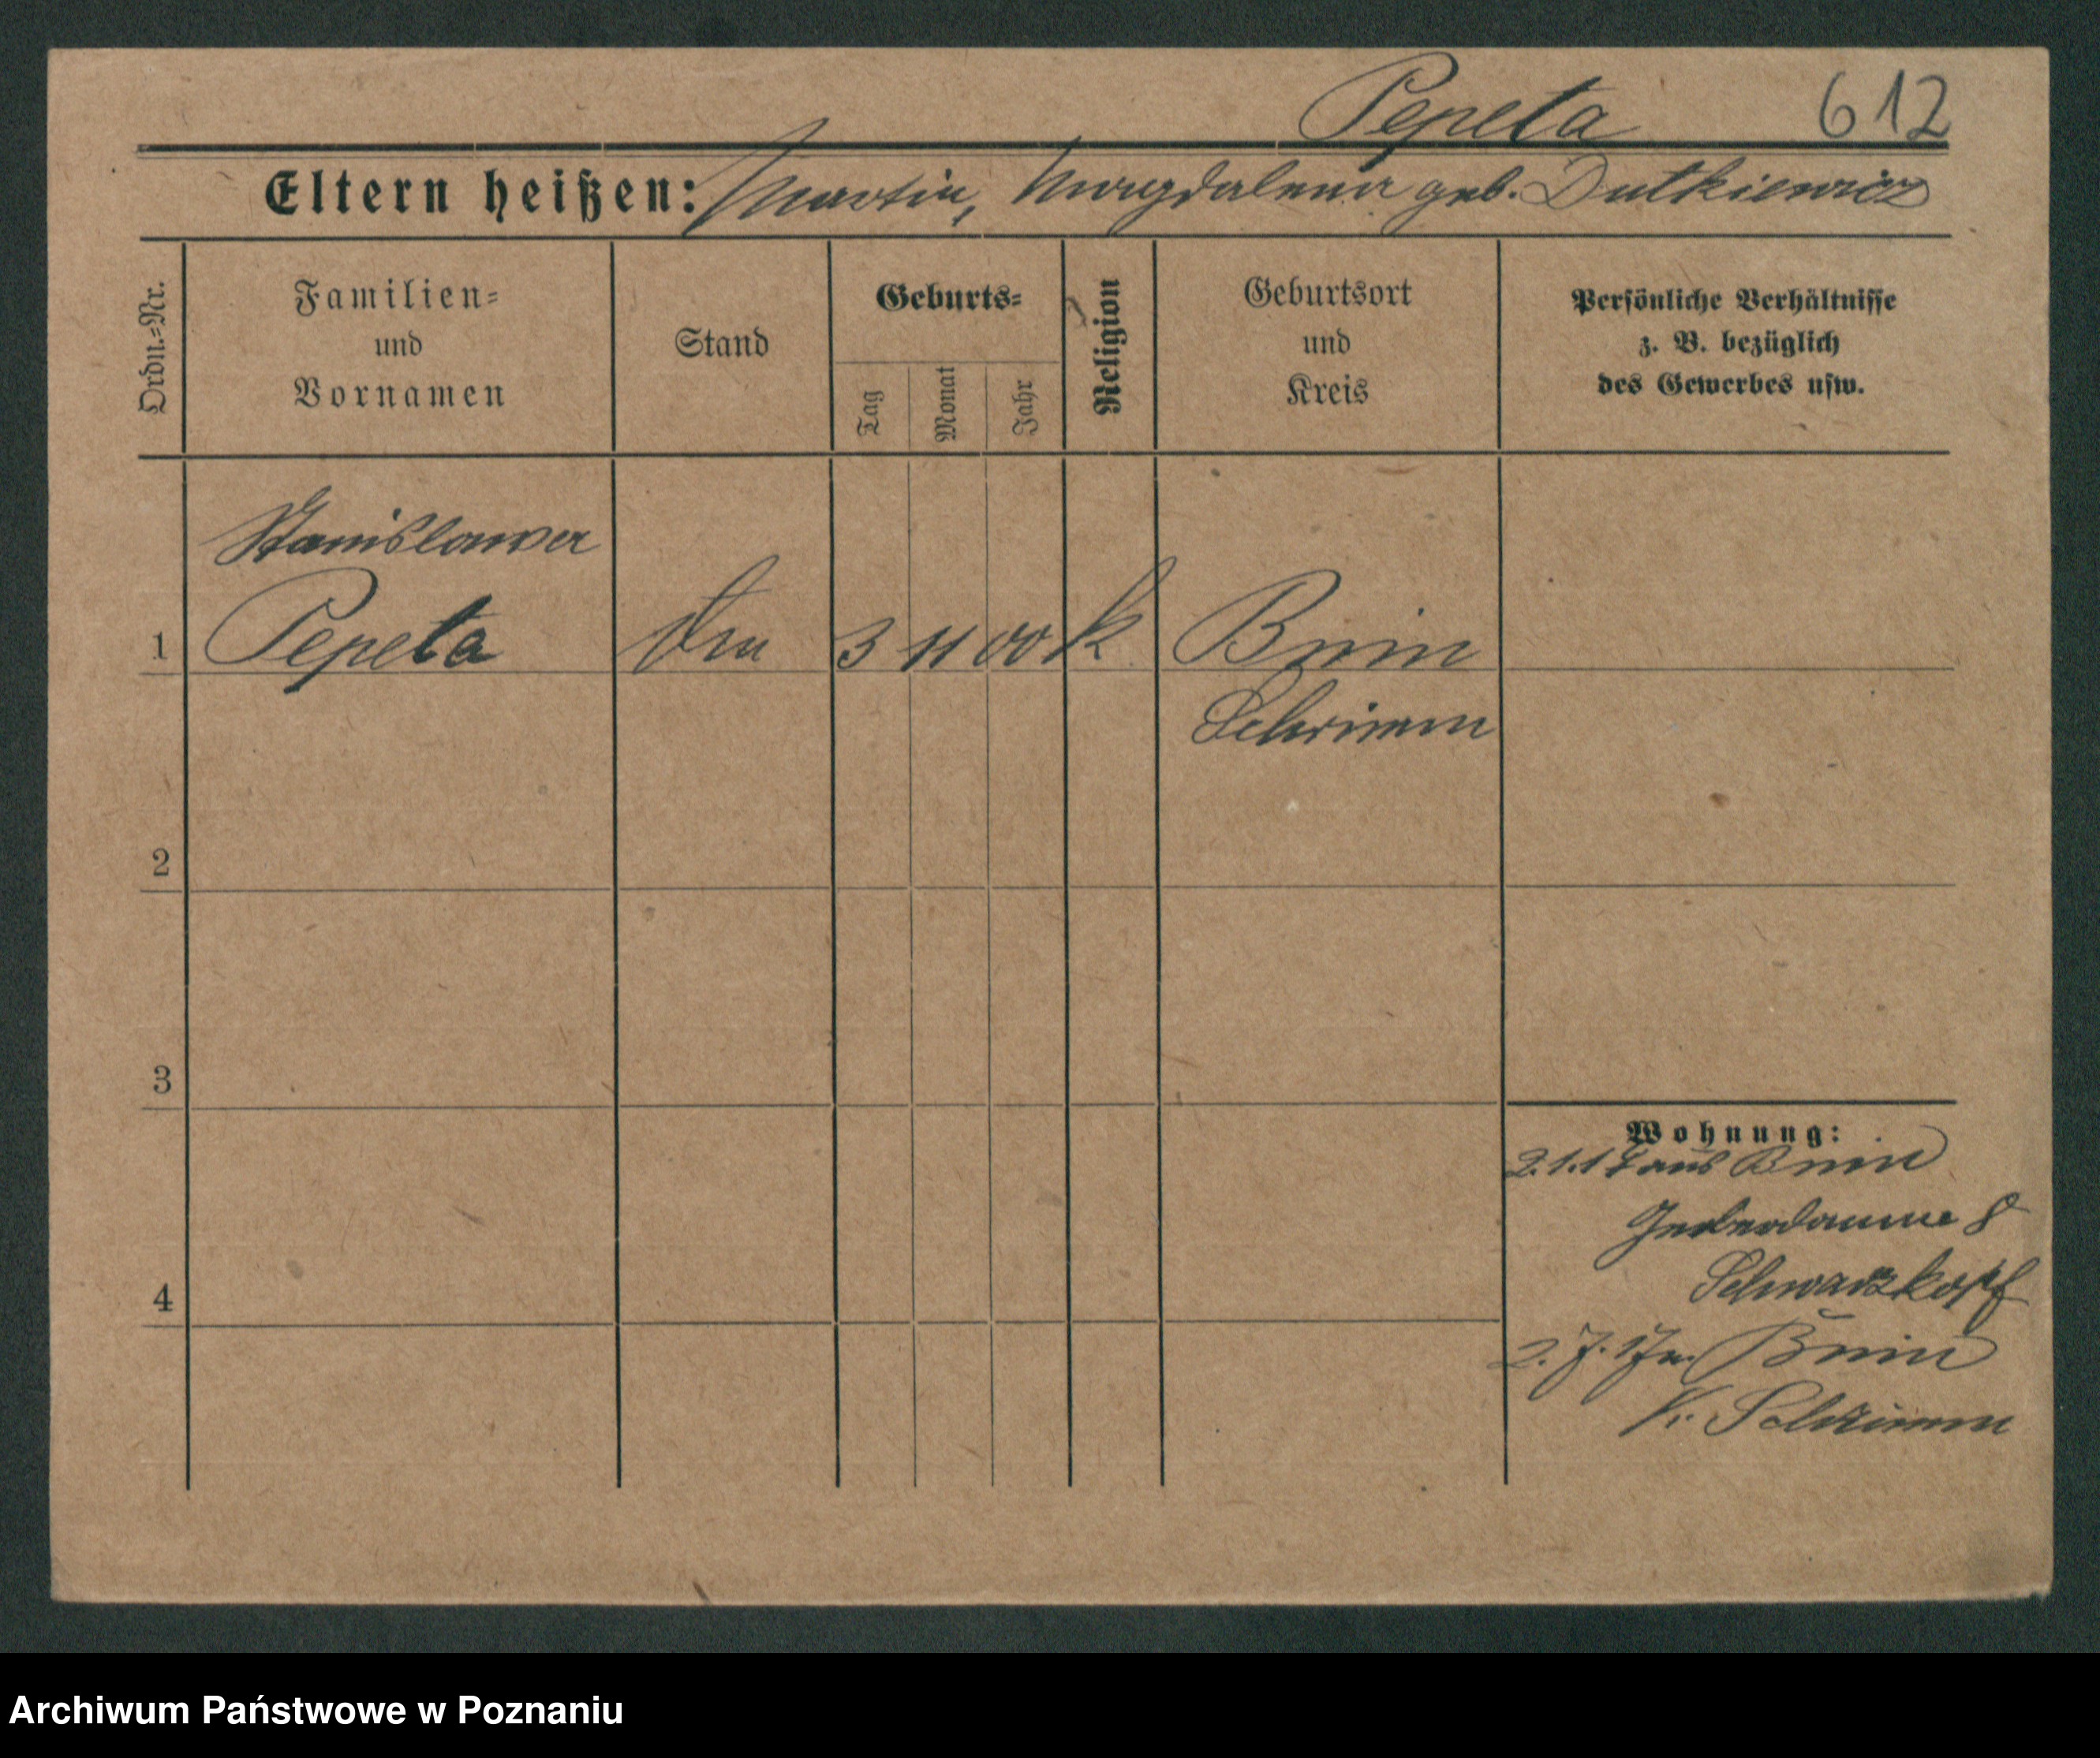 Pepeta 612
Eltern heißen: Martin, Magdalena geb. Dutkiewicz
Ordn.-Nr.
Familien-
und
Vornamen
Stand
Geburts-
Tag
Monat
Jahr
Religion
Geburtsort
und
Kreis
Persönliche Verhältnisse
z. B. bezüglich
des Gewerbes usw.
Stanislawa
1 Pepeta 3 11 00 k Bnin
Schrimm
2
3
4
Wohnung:
2.1.17 aus Bnin
Gerberdamm 8
Schwarzkopf
2.7.17 n. Bnin
Kr. Schrimm
Archiwum Państwowe w Poznaniu